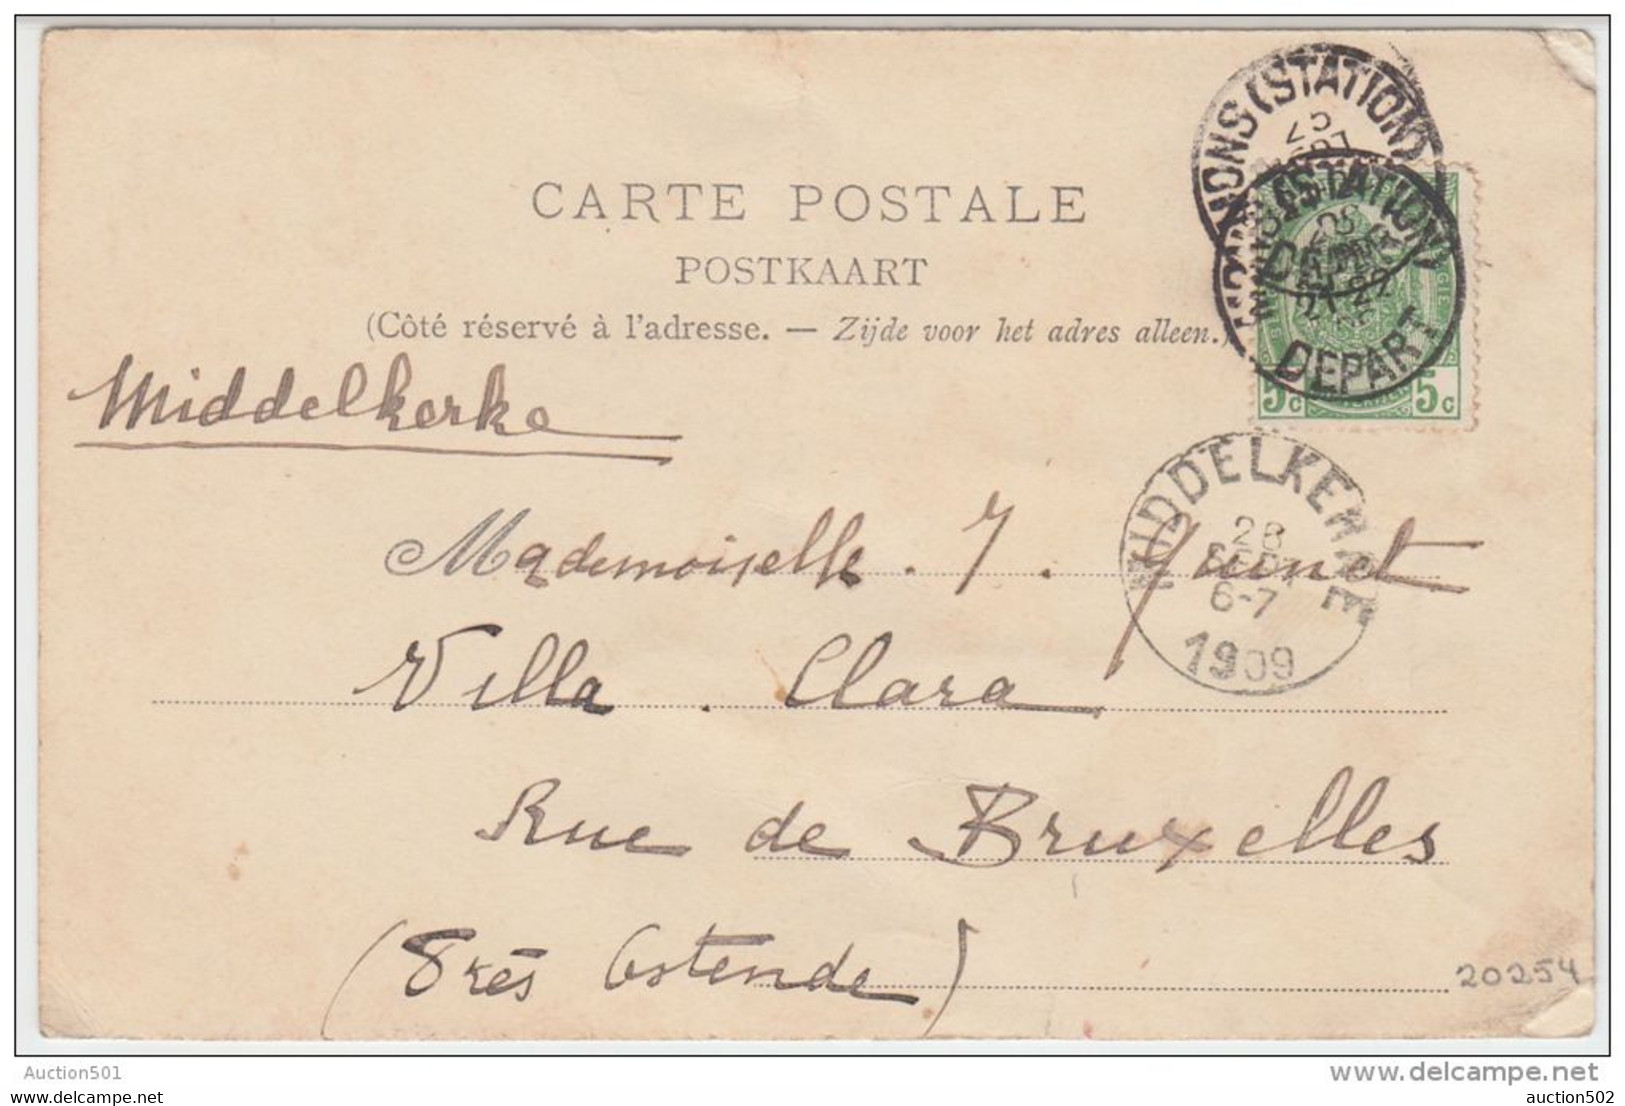 MONS (STATION)
25
MONS (STATION)
DEPART
CARTE POSTALE
POSTKAART
(Côté réservé à l'adresse. — Zijde voor het adres alleen.)
5c 5c
Middelkerke
MIDDELKERKE
28
SEPT
6-7
1909
Mademoiselle. J. Quinet
Villa. Clara
Rue de Bruxelles
(Près Ostende)
20254
Auction501
www.delcampe.net
auction502